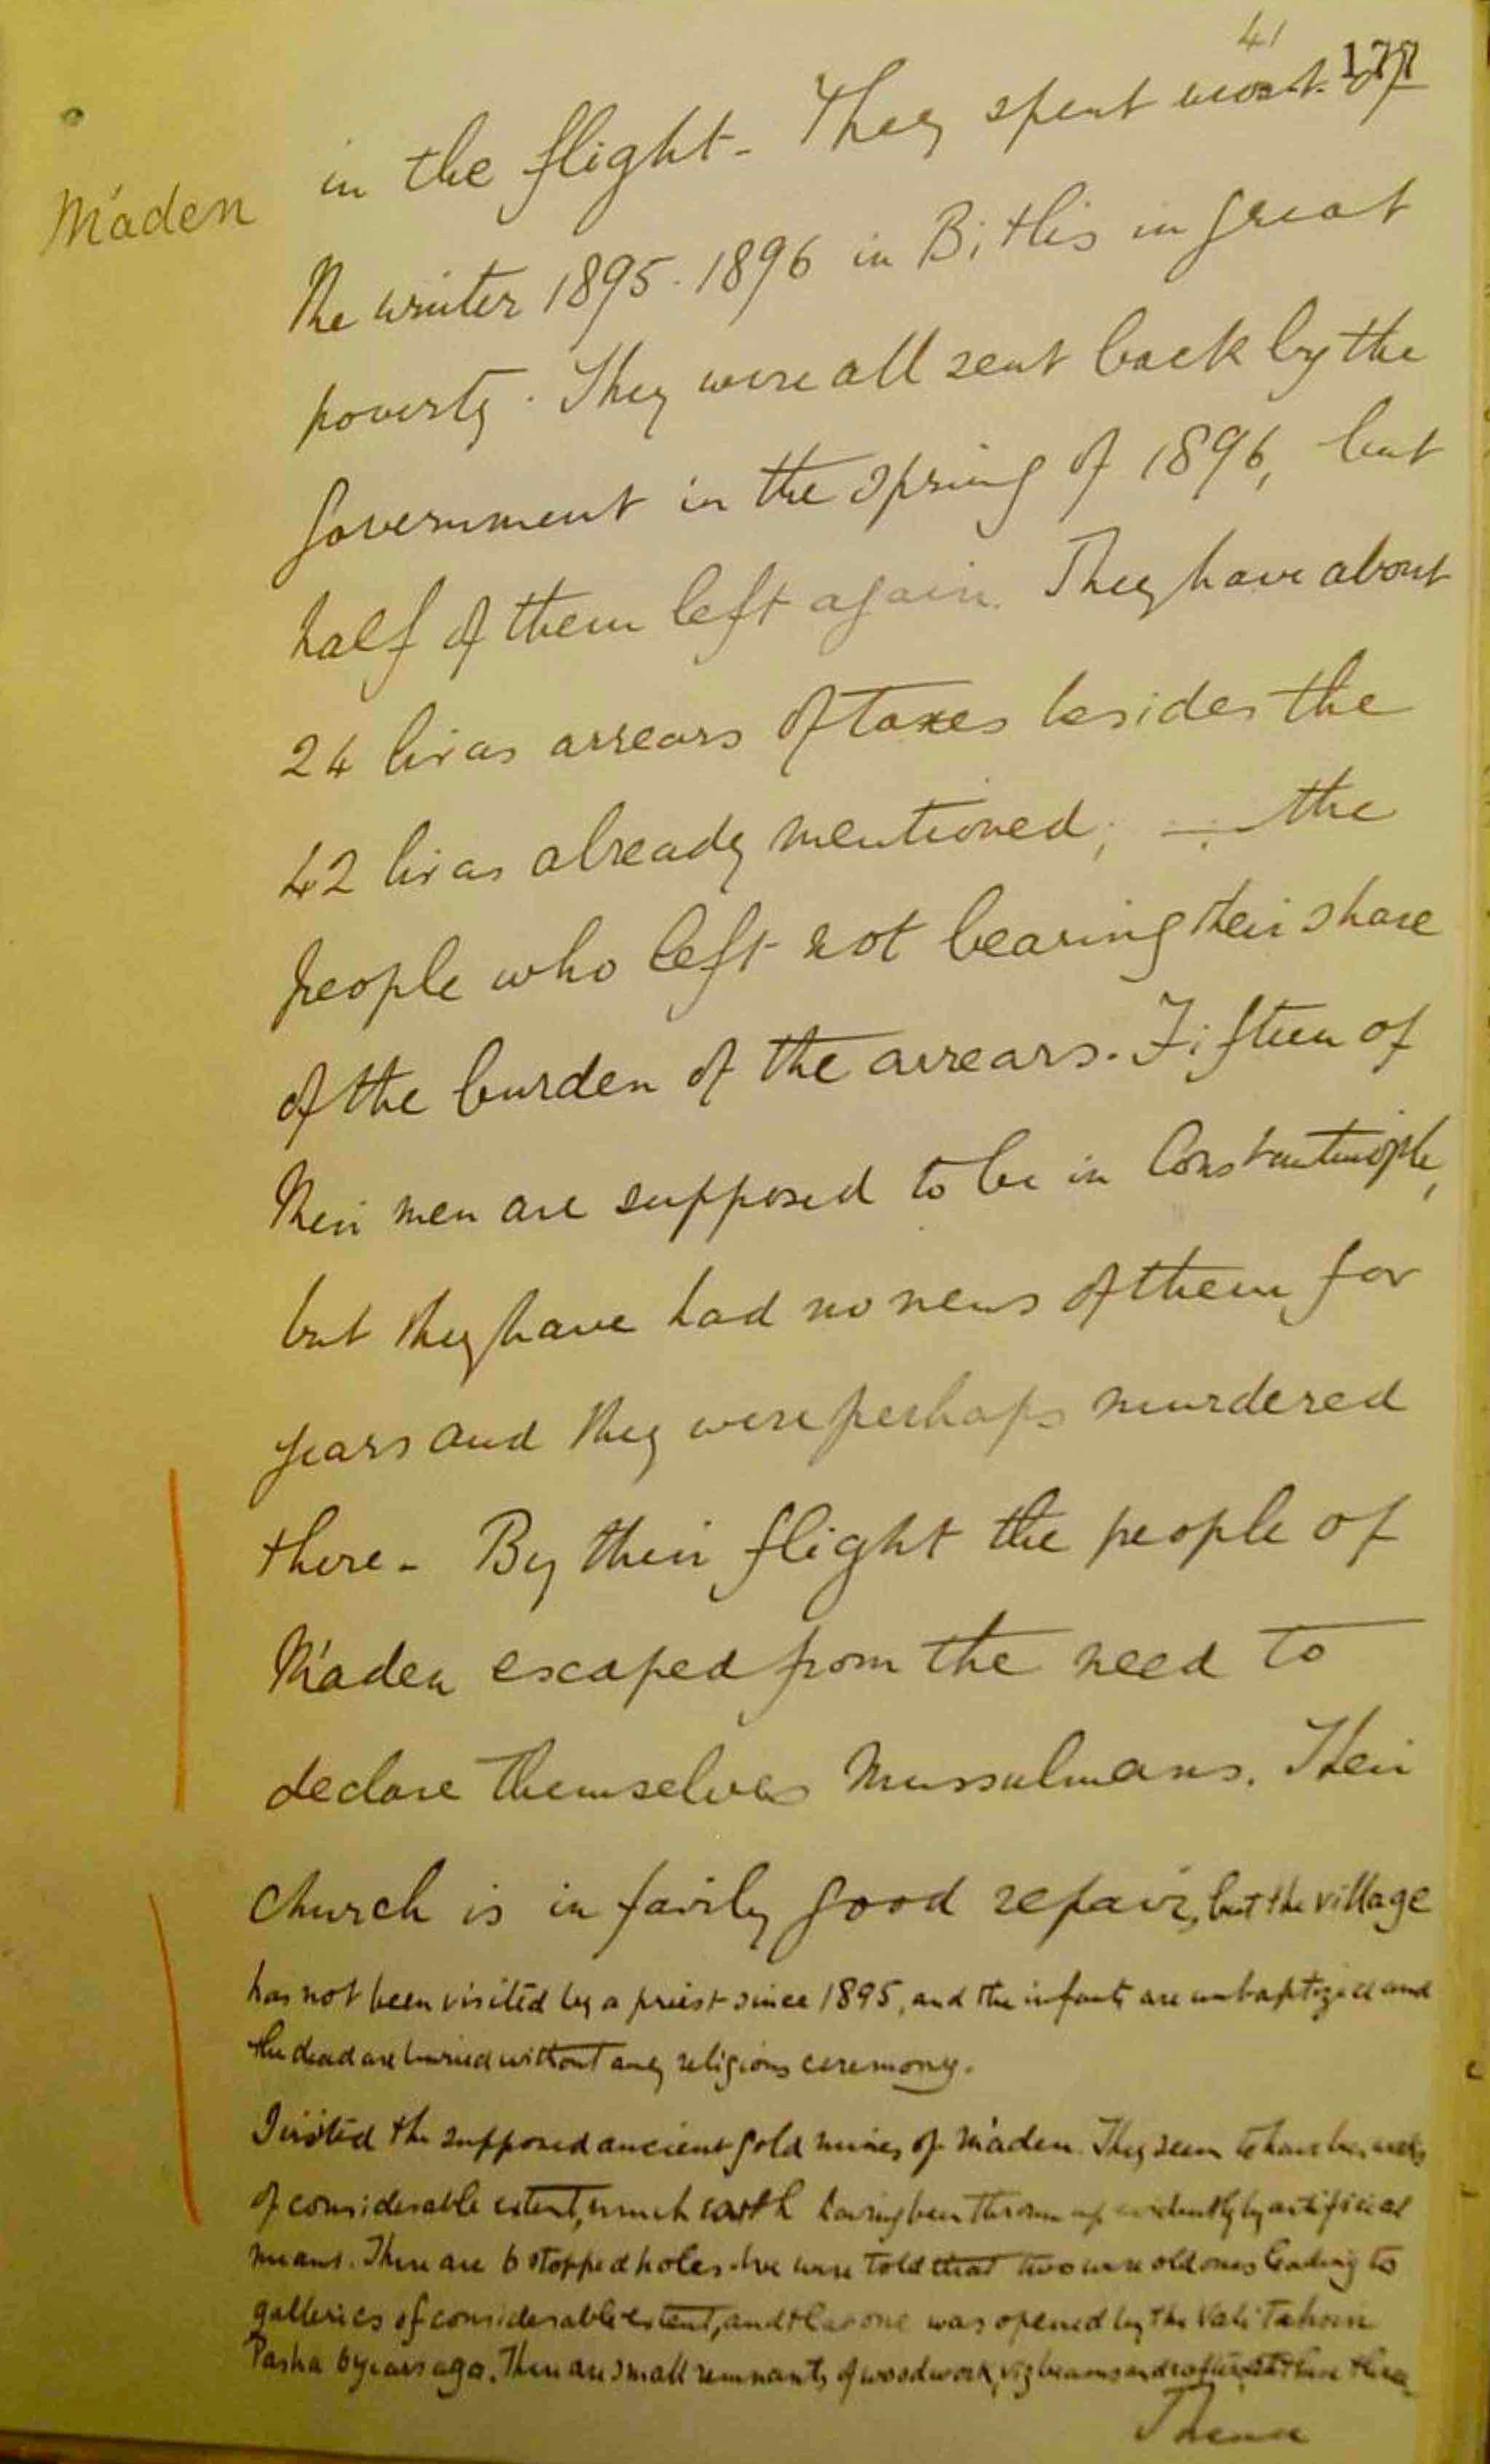 41
177
Máden
in the flight - They spent most of
the winter 1895-1896 in Bitlis in great
poverty. They were all sent back by the
government in the spring of 1896, but
half of them left again. They have about
24 liras arrears of taxes besides the
42 liras already mentioned; - the
people who left not bearing their share
of the burden of the arrears. Fifteen of
their men are supposed to be in Constantinople,
but they have had no news of them for
years and they were perhaps murdered
there - By their flight the people of
Máden escaped from the need to
declare themselves Mussulmans. Their
church is in fairly good repair, but the village
has not been visited by a priest since 1895, and the infants are unbaptized and
the dead are buried without any religious ceremony.
I visited the supposed ancient gold mines of Máden. They seem to have been works
of considerable extent, much earth having been thrown up evidently by artificial
means. There are 6 stopped holes. We were told that two were old ones leading to
galleries of considerable extent, and that one was opened by the Vali Tahsin
Pasha 6 years ago. There are small remnants of woodwork, viz beams and rafters
Thence